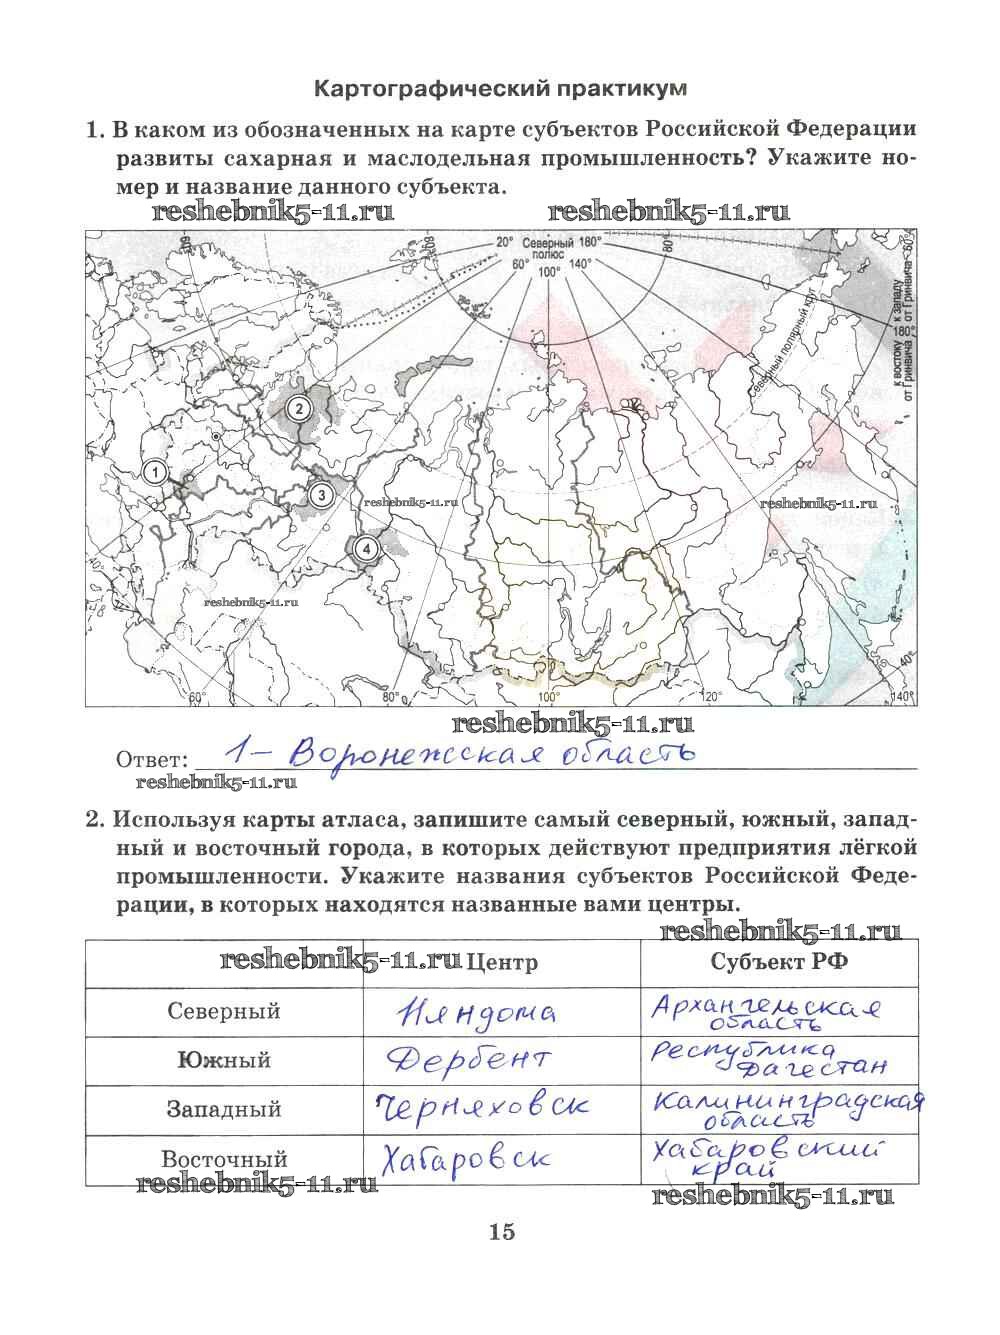 Картографический практикум
1. В каком из обозначенных на карте субъектов Российской Федерации
развиты сахарная и маслодельная промышленность? Укажите но-
мер и название данного субъекта.
reshebnik5-11.ru reshebnik5-11.ru
60° 60° 20° Северный полюс 180° 80°
60° 100° 140°
к востоку от Гринвича 180° к западу от Гринвича 60°
Северный полярный круг
2
1
3
reshebnik5-11.ru reshebnik5-11.ru
4
40°
reshebnik5-11.ru
40°
60° 80° 100° 120° 140°
reshebnik5-11.ru
Ответ: 1 – Воронежская область
reshebnik5-11.ru
2. Используя карты атласа, запишите самый северный, южный, запад-
ный и восточный города, в которых действуют предприятия лёгкой
промышленности. Укажите названия субъектов Российской Феде-
рации, в которых находятся названные вами центры.
reshebnik5-11.ru
reshebnik5-11.ru Центр Субъект РФ
Северный Няндома Архангельская область
Южный Дербент Республика Дагестан
Западный Черняховск Калининградская область
Восточный Хабаровск Хабаровский край
reshebnik5-11.ru reshebnik5-11.ru
15